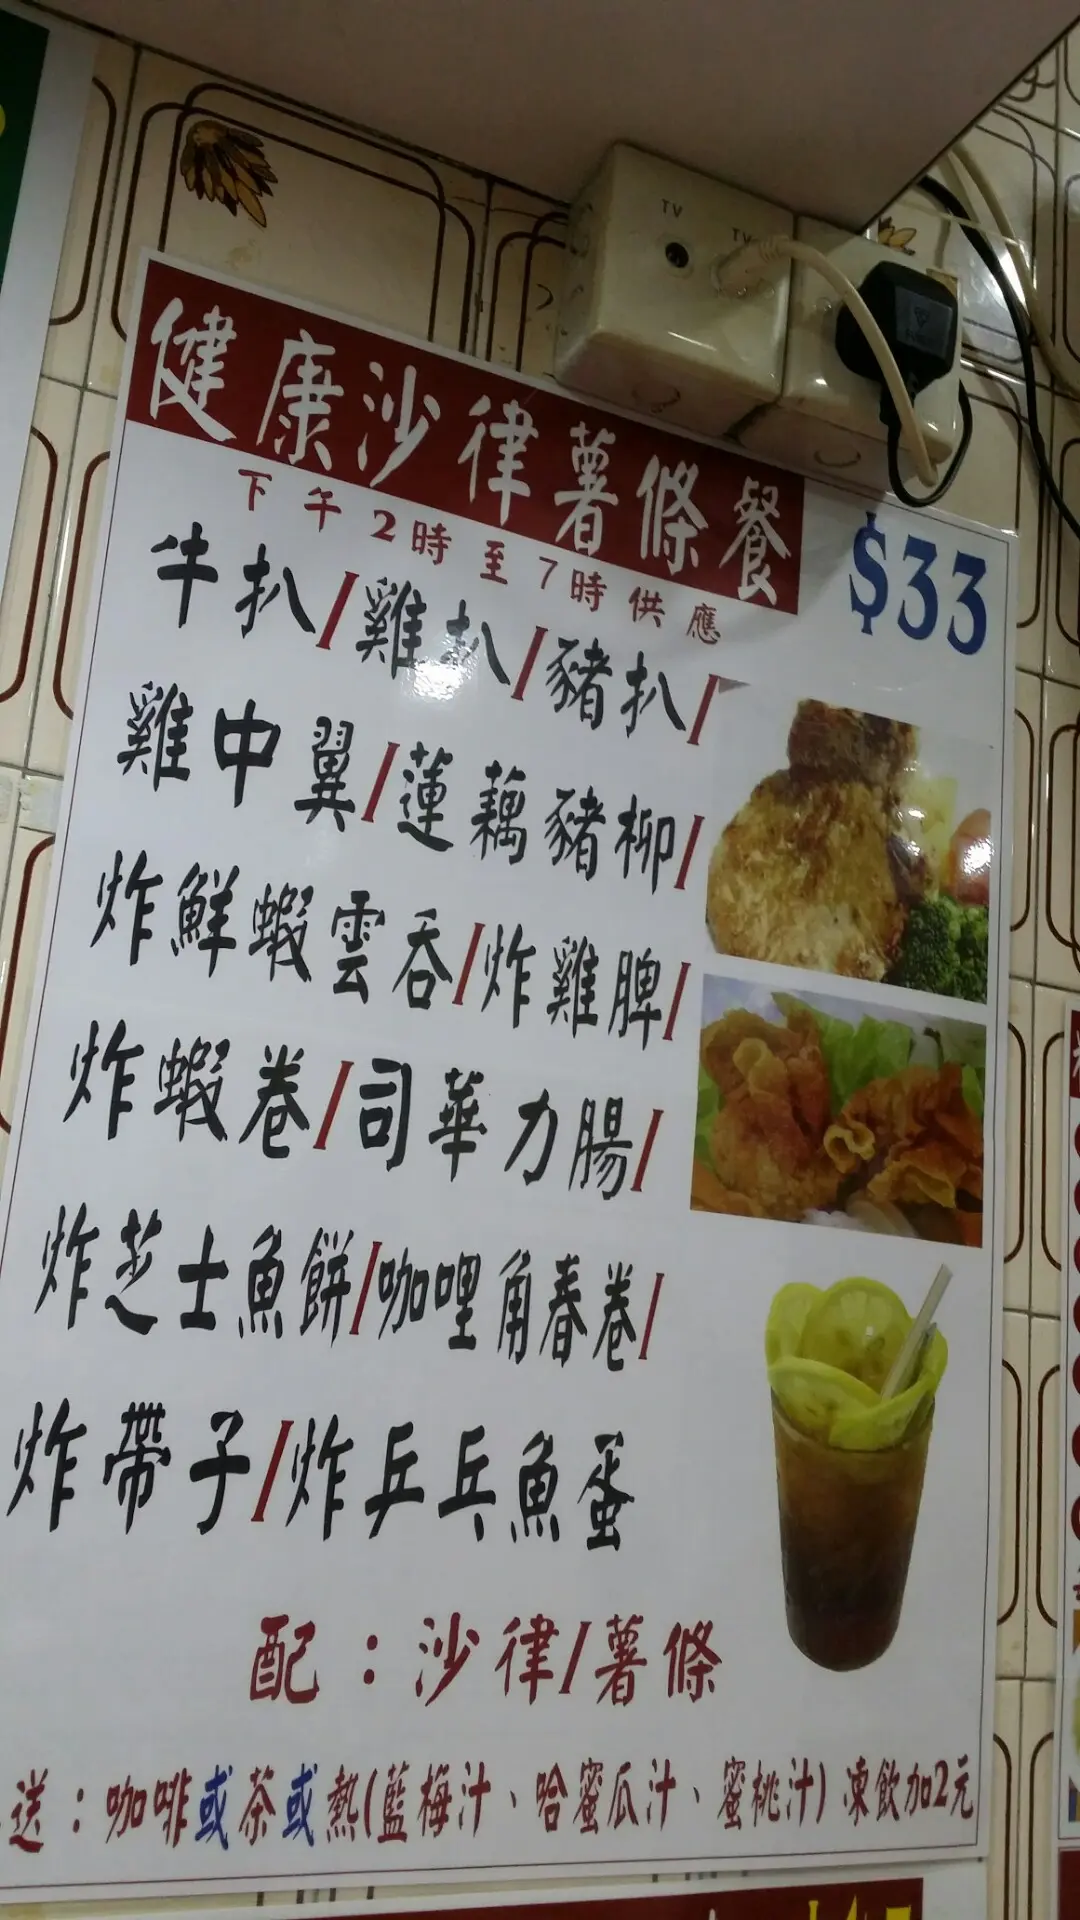 TV
TV
健康沙律薯條餐
下午2時至7時供應
$33
牛扒/雞扒/豬扒/
雞中翼/蓮藕豬柳/
炸鮮蝦雲吞/炸雞脾/
炸蝦卷/司華力腸/
炸芝士魚餅/咖哩角春卷/
炸帶子/炸乒乓魚蛋
配：沙律/薯條
送：咖啡或茶或熱(藍梅汁、哈蜜瓜汁、蜜桃汁) 凍飲加2元